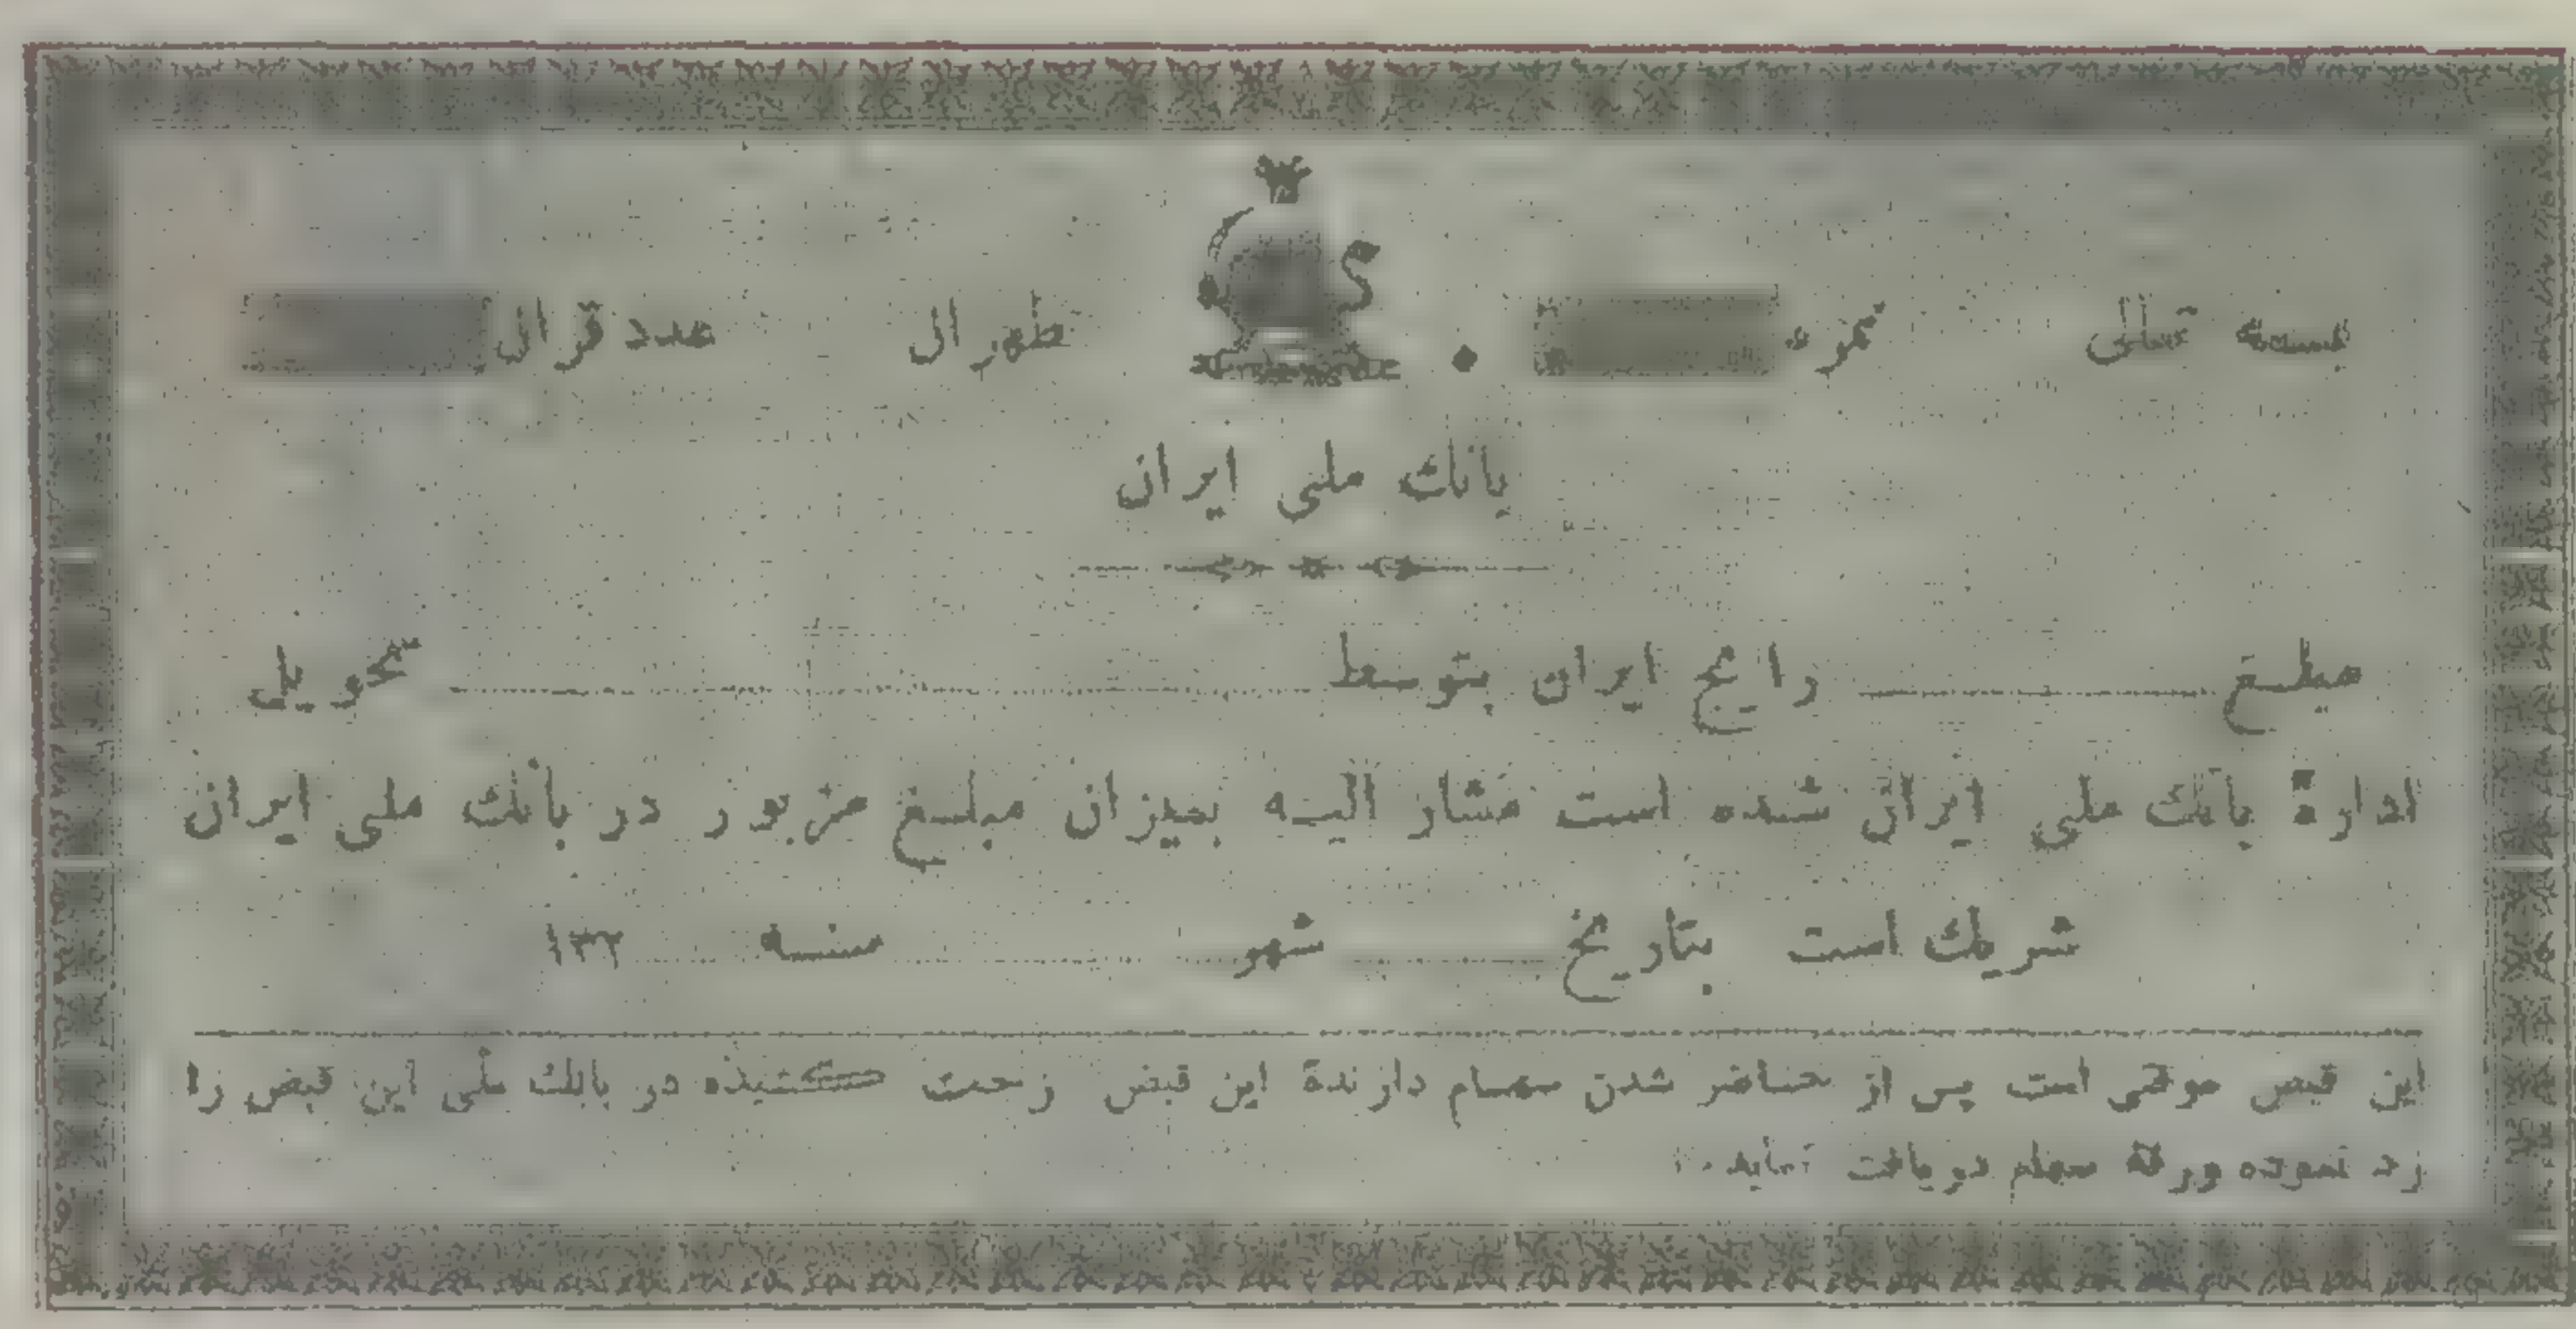 بسمه تعالی نمره طهران عدد قران
بانك ملی ایران
مبلغ رایج ایران بتوسط تحویل
ادارهٔ بانك ملی ایران شده است مشار الیه بمیزان مبلغ مزبور در بانك ملی ایران
شریك است بتاریخ شهر سنه ۱۳۲
این قبض موقتی است پس از حاضر شدن سهام دارندهٔ این قبض زحمت کشیده در بانك ملی این قبض را
رد نموده ورقهٔ سهام دریافت نماید